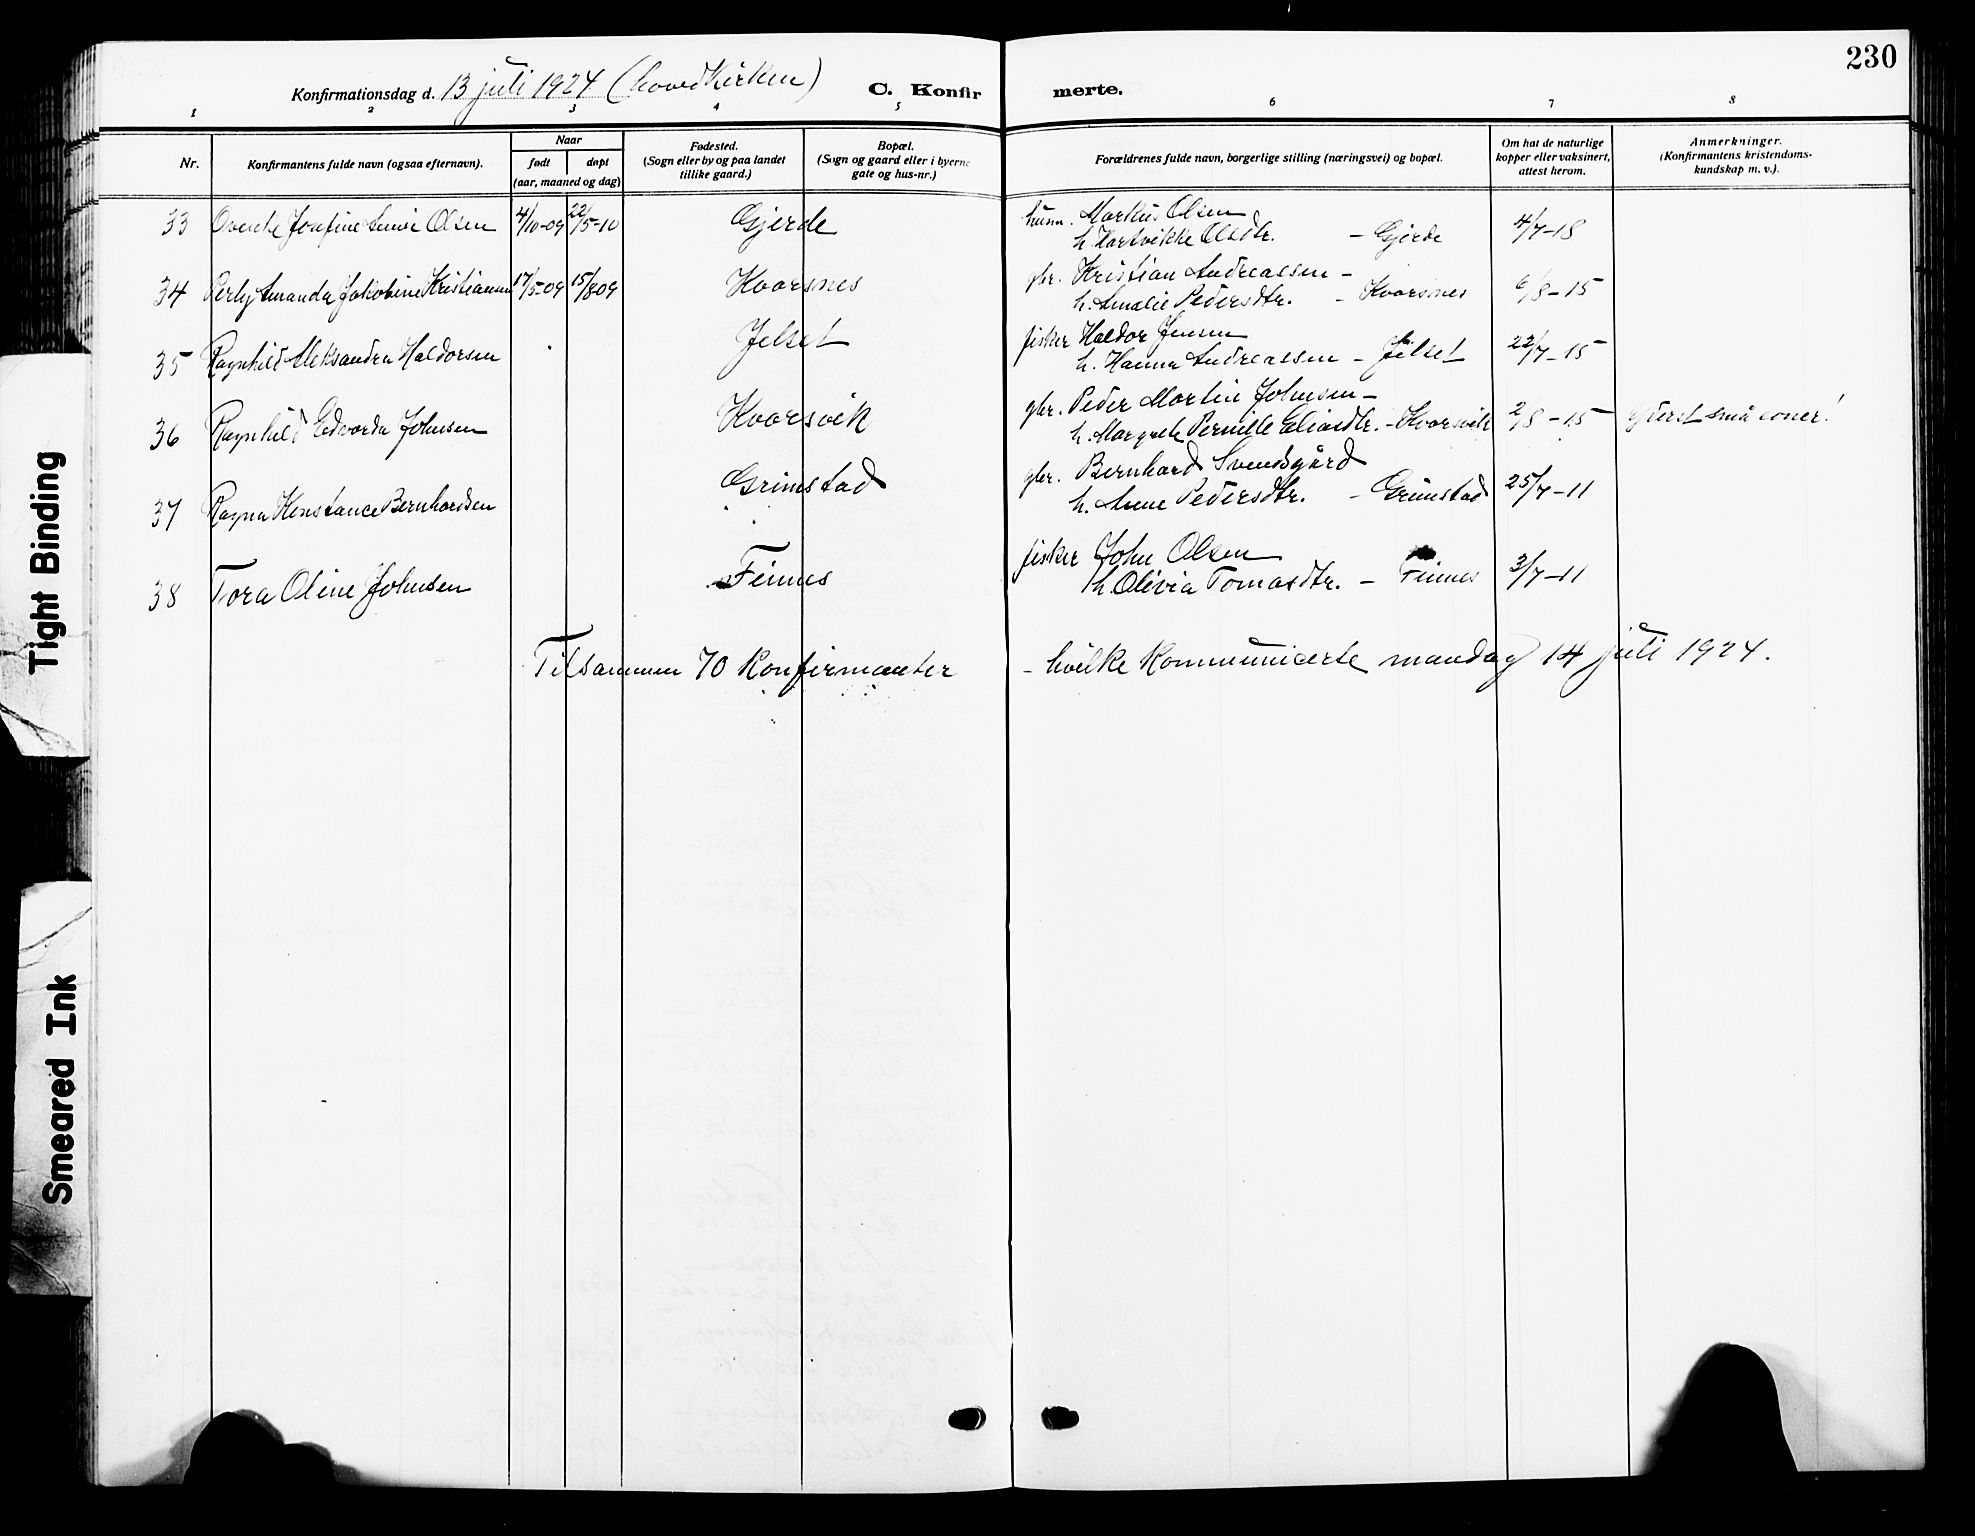 230
Konfirmationsdag d. 13 juli 1924 (hovedkirken) C. Konfirmerte.
1 2 3 4 5 6 7 8
Nr.
Konfirmantens fulde navn (ogsaa efternavn).
Naar
født døpt
(aar, maaned og dag)
Fødested.
(Sogn eller by og paa landet
tillike gaard.)
Bopæl.
(Sogn og gaard eller i byerne
gate og hus-nr.)
Forældrenes fulde navn, borgerlige stilling (næringsvei) og bopæl.
Om hat de naturlige
kopper eller vaksinert,
attest herom.
Anmerkninger.
(Konfirmantens kristendoms-
kundskap m. v.).
33 Josefine Olsen 4/10-09 22/5-10 Gjerde husm. Markus Olsen
h. Hartvikke Olsdtr. - Gjerde 4/7-18
34 Perly Amanda Jakobine Kristiansen 17/5-09 15/8 09 Kvarsnes gbr. Kristian Andreassen -
h. Amalie Pedersdtr. - Kvarsnes 6/8-15
35 Ragnhild Aleksandra Haldorsen Jelset fisker Haldor Jensen
h. Hanna Andreassen - Jelset 22/7-15
36 Ragnhild Edvarda Johnsen Kvarsvik gbr. Peder Martin Johnsen -
h. Margrete Pernille Eliasdtr. - Kvarsvik 2/8-15 små evner!
37 Ragna Konstance Bernhardsen Grimstad gbr. Bernhard Svendsgård
h. Anne Pedersdtr. - Grimstad 25/7-11
38 Tora Oline Johnsen Finnes fisker John Olsen
h. Olivia Tomasdtr. - Finnes 3/7-11
Tilsammen 70 konfirmanter - hvilke kommunicerte mandag 14 juli 1924.
Tight Binding
Smeared Ink